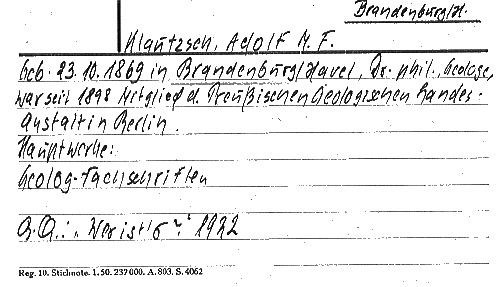 Brandenburg/H.
Klautzsch, Adolf M. F.
Geb. 23.10.1869 in Brandenburg/Havel, Dr. phil., Geologe,
war seit 1898 Mitglied d. Preußischen Geologischen Landes-
anstalt in Berlin.
Hauptwerke:
Geolog. Fachschriften
"Wer ist's?" 1922
Reg. 10. Stichnote. 1. 50. 237 000. A. 803. S. 4062